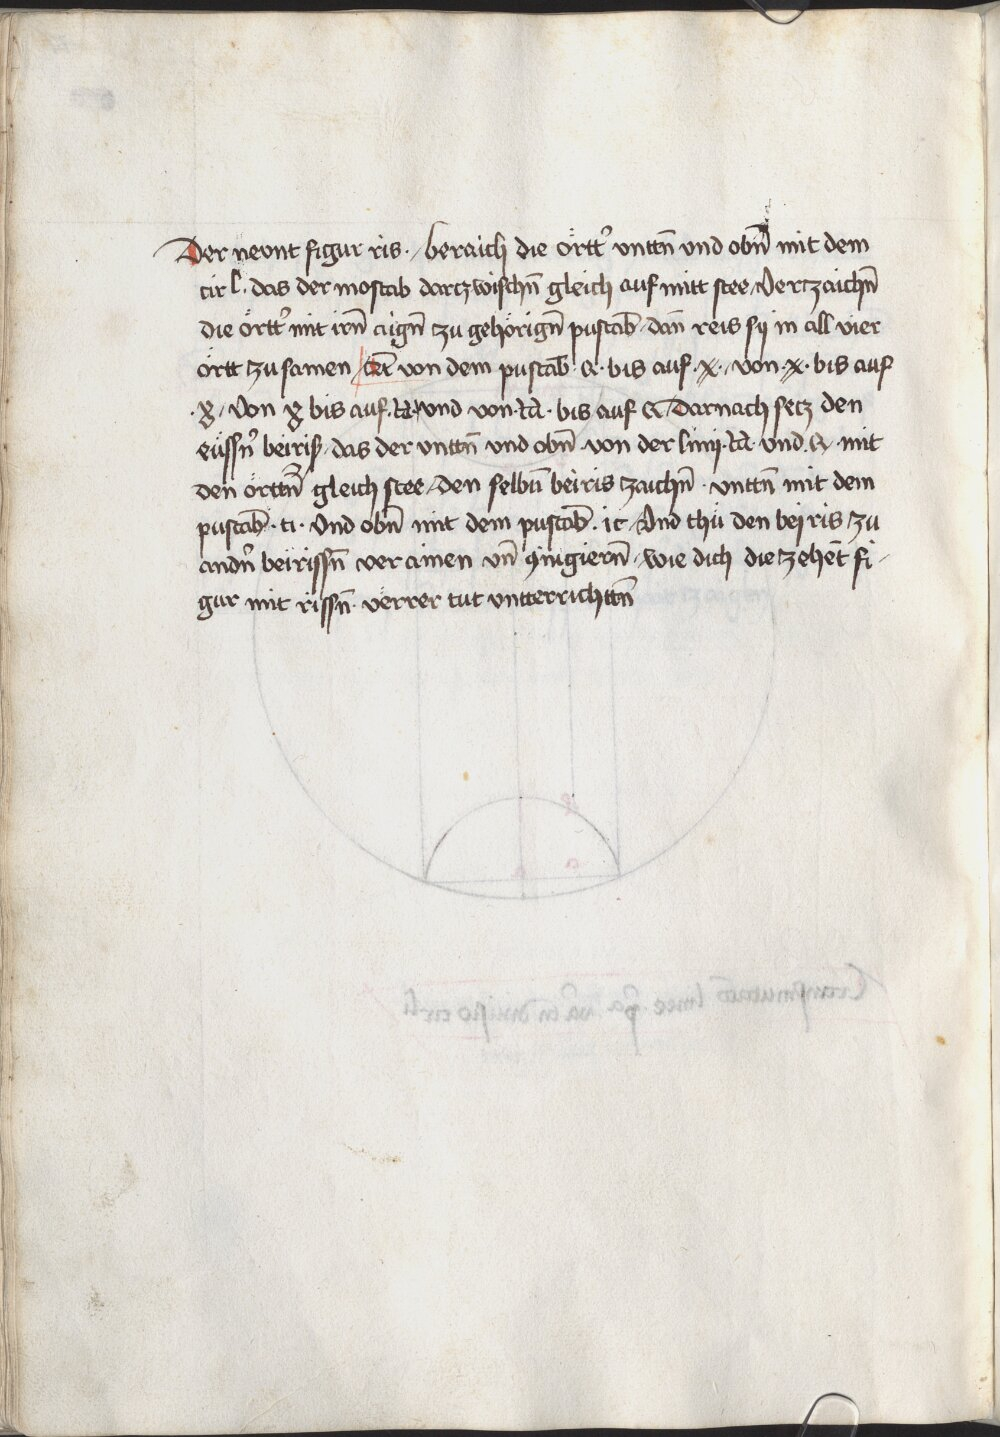 Der neont figur ris / beraich die örtt' vnttñ vnd obñ mit dem
cirl · das der mostab darczwischñ gleich auf mitt stee / Verczaichñ
die örtt' mit irñ aigñ zu gehörigñ pustab / dañ reis sy in all vier
ortt zu samen / von dem pustab · bis auf · x · / von · x · bis auf
/ Von bis auf · vnd von · bis auf Darnach secz den
eüssñ' beiris / das der vnttñ vnd obñ von der linij · vnd · mit
den örttñ gleich stee / den selbñ beiris zaichñ · vnttñ mit dem
pustab · ti · Vnd obñ mit dem pustab · ic / Vnd thü den bej ris zu
andñ' beirissñ verainen vñ / wie dich die zehet fi /
gur mit rissñ · verrer tut vntterrichttñ